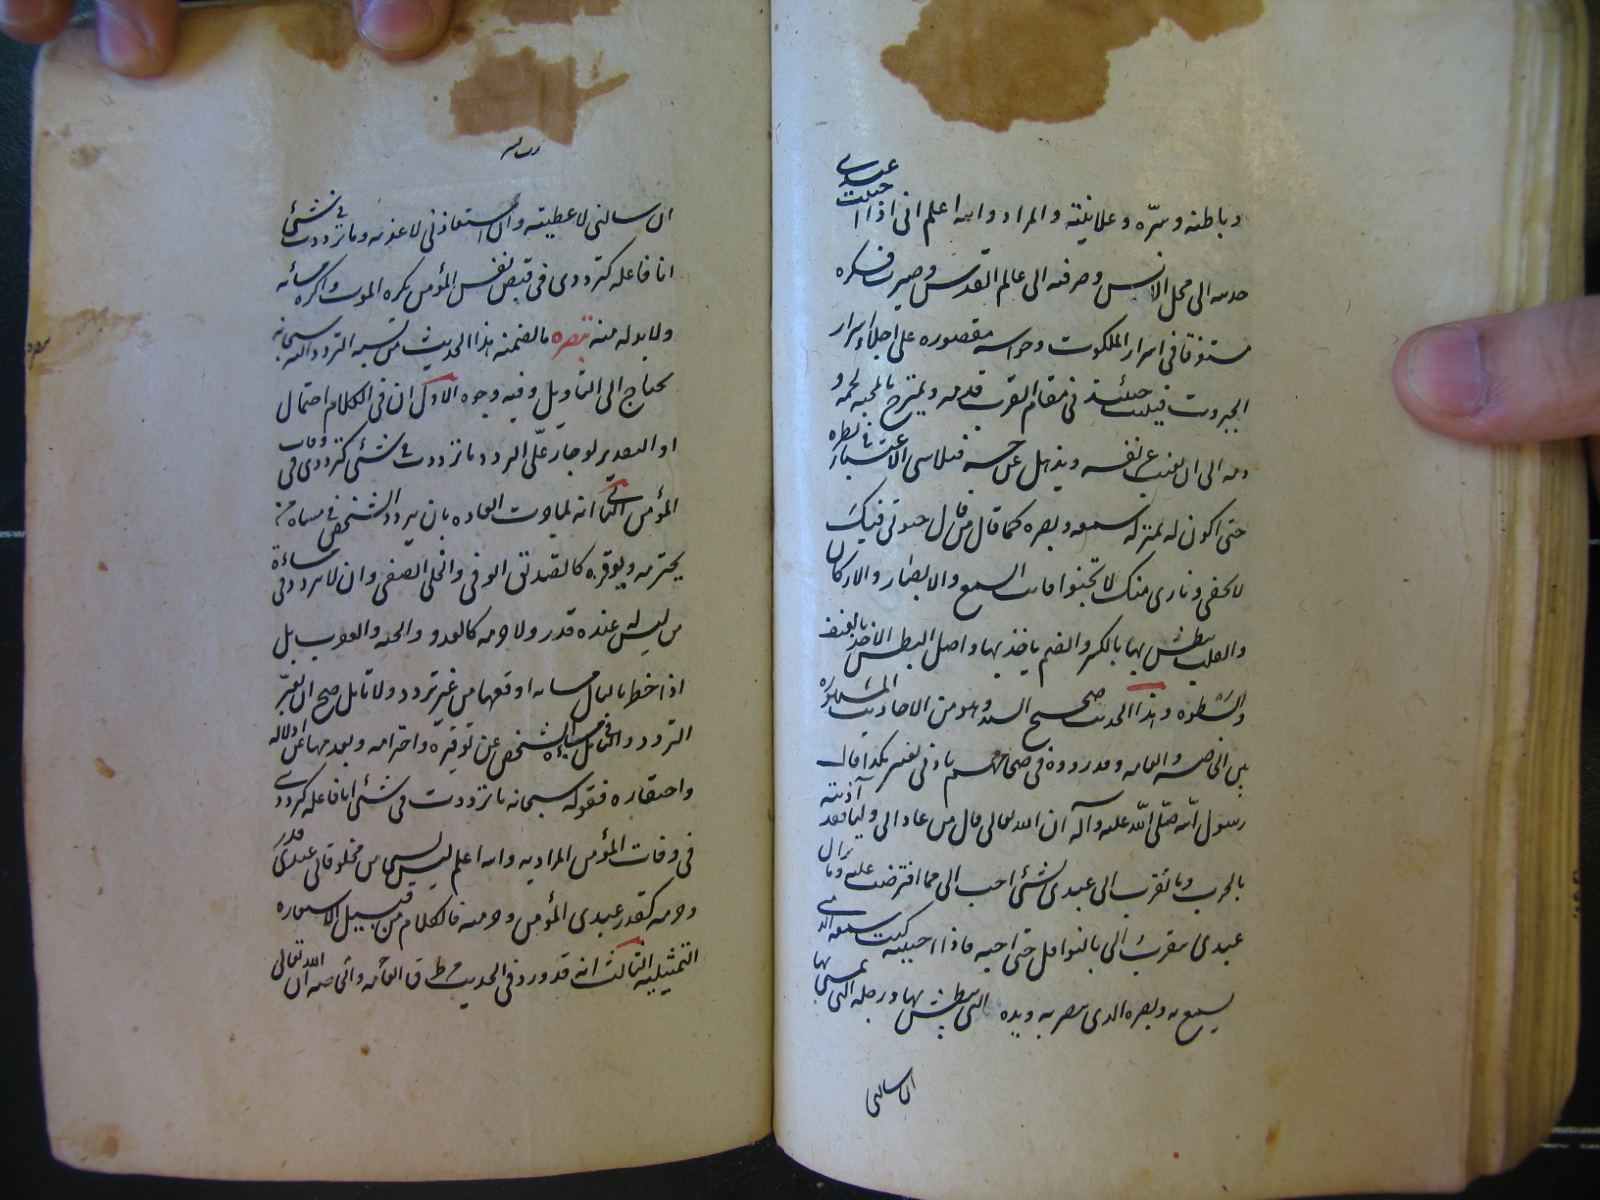 وباطنه وسرّه وعلانيته والمراد والله اعلم انى اذا احببت عبدى
جذبته الى محل الانس وصرفته الى عالم القدس وصيرت فكره
مستغرقا فى اسرار الملكوت وحواسه مقصوره على اجتلاء اسرار
الجبروت فيثبت حينئذ فى مقام القرب قدمه ويمتزج بالمحبه لحمه و
دمه الى ان يغيب عن نفسه ويذهل عن حسه فيتلاشى الاغيار فى نظره
حتى اكون له بمنزله سمعه وبصره كما قال من قال جنونى فيك
لا يخفى ونارى منك لا تخبوا فانت السمع والابصار والاركان
والقلب يبطش بها بالكسر والضم ياخذ بها واصل البطش الاخذ بالعنف
والسّطوه وهذا الحديث صحيح السند وهو من الاحاديث المشهوره
بين الخاصه والعامه وقد رووه فى صحاحهم بادنى تغيير هكذا قال
رسول الله صلّى الله عليه وآله ان الله تعالى قال من عادا لى وليا فقد آذنته
بالحرب وما تقرب الى عبدى بشئ احب الى مما افترضت عليه وما يزال
عبدى يتقرب الى بالنوافل حتى احبه فاذا احببته كنت سمعه الذى
يسمع به وبصره الذى يبصر به ويده التى يبطش بها ورجله التى يمشى بها
ان سالنى
ان سالنى لاعطيته وان استعاذنى لاعذته وما ترددت فى شئ
انا فاعله كترددى فى قبض نفس المؤمن يكره الموت واكره مسائته
ولا بد له منه تبصره ما تضمنه هذا الحديث من نسبه التردد اليه سبحانه
يحتاج الى التاويل وفيه وجوه الاول ان فى الكلام اضمار
او التقدير لو جاز علىّ التردد ما ترددت فى شئ كترددى فى وفات
المؤمن الثانى انه لما جرت العاده بان يتردد الشخص فى مساءة من
يحترمه ويوقره كالصّديق الوفى والخل الصفى وان لا يتردد فى مساءة
من ليس له عنده قدر ولا حرمه كالعدو والحيه والعقرب بل
اذا خطر بالبال مساءته اوقعها من غير تردد ولا تامل صح ان يعبّر
التردد والتامل فى مساءة الشخص عن توقيره واحترامه وبعدمهما عن اذلاله
واحتقاره فقوله سبحانه ما ترددت فى شئ انا فاعله كترددى
فى وفات المؤمن المراد به والله اعلم ليس لشئ من مخلوقاتى عندى قدر
وحرمه كقدر عبدى المؤمن وحرمته فالكلام من قبيل الاستعاره
التمثيليه الثالث انه قد ورد فى الحديث من طرق العامه والخاصه ان الله تعالى